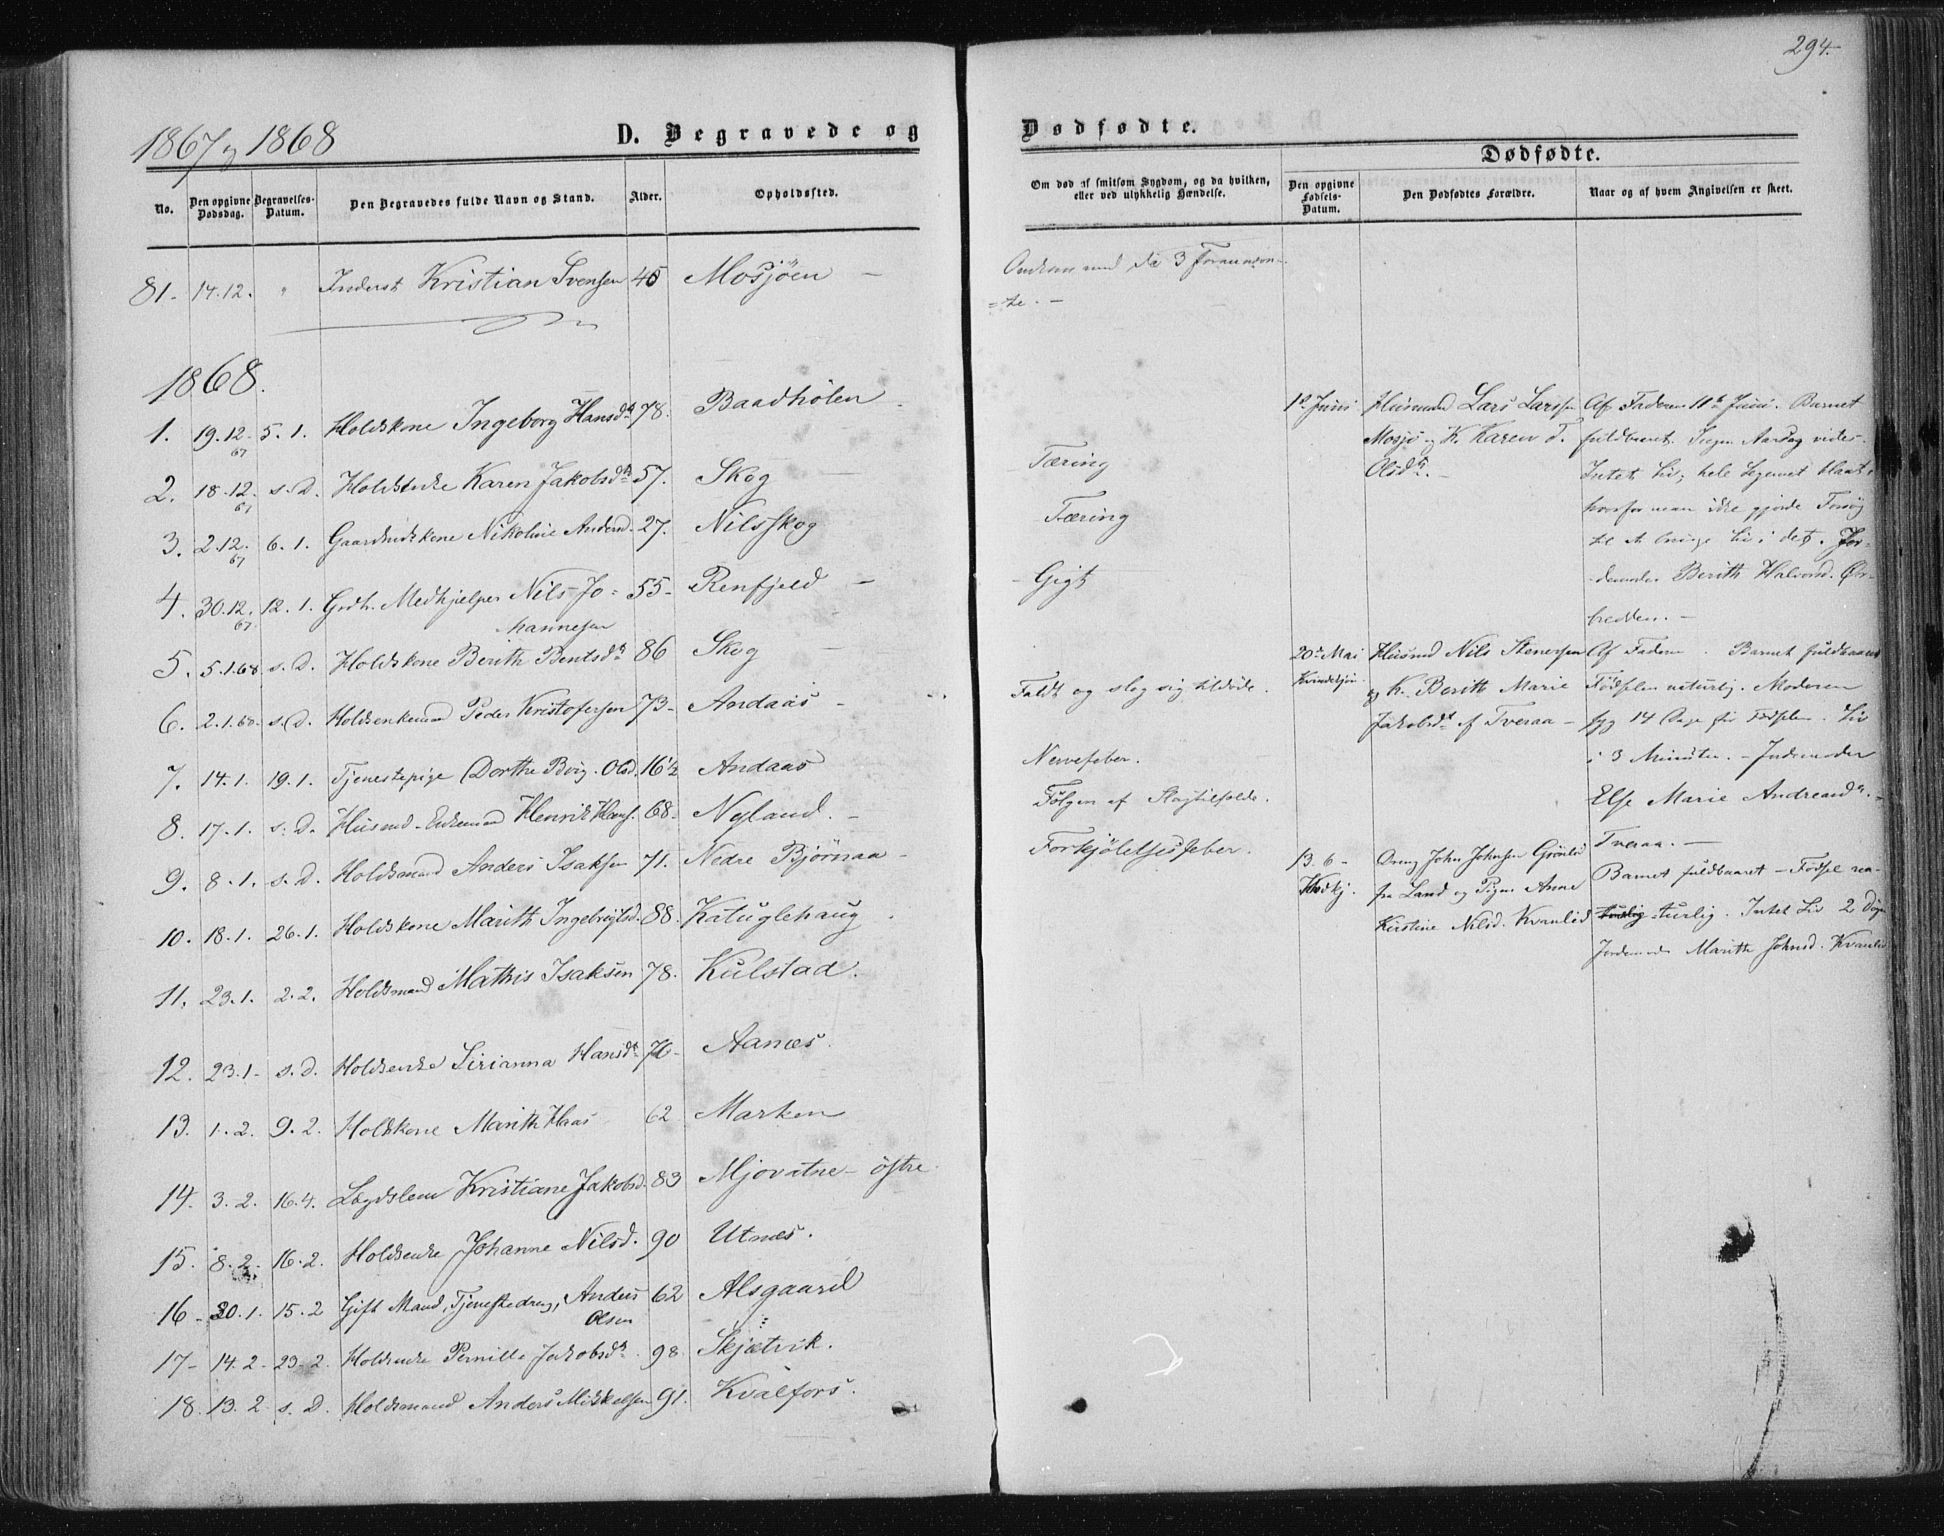 294.
1867 og 1868
D. Begravede og
Dødfødte.
Dødfødte.
No.
Den opgivne Dødsdag.
Begravelses-Datum.
Den Begravedes fulde Navn og Stand.
Alder.
Opholdssted.
Om død af smitsom Sygdom, og da hvilken, eller ved ulykkelig Hændelse.
Den opgivne Fødsels-Datum.
Den Dødfødtes Forældre.
Naar og af hvem Angivelsen er skeet.
81. 14.12. " Inderst Kristian Svensen 45 Mosjöen –
Omkom med de 3
1868.
1. 19.12. 67 5.1. Holdskone Ingeborg Hansdr 78. Baadhölen
2. 18.12. 67 s.D. Holdsenke Karen Jakobsdr 57. Skog – Tæring
3. 2.12. 67 6.1. Gaardmdskone Nikoline Andersd. 27. Nilsskog Tæring
4. 30.12. 67 12.1. Grdbr. Medhjelper Nils Jo=
hannesen 55 – Renfjeld – Gigt
5. 5.1.68 s.D. Holdskone Berith Bentsdr 86 Skog
6. 2.1.68 s.D. Holdsenkemand Peder Kristofersen 73 – Andaas – Faldt og slog sig tildöde.
7. 14.1. 19.1. Tjenestepige Dorthe Olsd. 16½ Andaas Nervefeber.
8. 17.1. s.D. Husmd. Enkemand Henrik Hans. 68 – Nyland. – Fölgen af Slagtilfælde.
9. 8.1. s.D. Holdsmand Anders Isaksen 71. Nedre Bjørnaa – Forkjölelsesfeber.
10. 18.1. 26.1. Holdskone Marith Ingebrigtsd. 88. Katuglehaug
11. 23.1. 2.2. Holdsmand Mathis Isaksen 78. Kulstad.
12. 23.1 – s.D. Holdsenke Sirianna Hansdr 70 – Aanæs.
13. 1.2. 9.2. Holdskone Marith Haas 62 Marken
14. 3.2. 16.4. Lægdslem Kristiane Jakobsd. 83 Mjovatne – östre
15. 8.2. 16.2. Holdsenke Johanne Nilsd. 90 Utnæs.
16 – 30.1. 15.2 Gift Mand, Tjenestedreng, Anders
Olsen 62 Alsgaard
17 – 14.2 – 23.2. Holdsenke Pernille Jakobsdr. 98. Skjætvik.
18. 13.2 s.D. Holdsmand Anders Mikkelsen 91. Kvalfors.
1ste Juni
Husmand Lars Larssen
Mosjö og K. Karen
Olsdr. –
Af Faderen 11te Juni. Barnet
fuldbaaret. Ingen Aarsag vides.
Intet Liv, hele Legemet blaat,
hvorfor man ikke gjorde Forsög
til at bringe Liv i det. Jor-
demoder Berith Halvorsd. Ør-
bredden. –
20de Mai
Kvindekjön
Husmd Nils Stenersen
og K. Berith Marie
Jakobsdr af Tveraa –
Af Faderen. Barnet fuldbaaret
Födselen naturlig. Moderen
syg 14 Dage för Födselen. Liv
i 3 Minuter. – Jordemoder
Else Marie Andreasdr. –
Tveraa. –
13.6 –
Kvdkj.
Dreng John Johnsen Grönlid
fra Land og Pigen Anne
Kirstine Nilsd. Kvanlid
Barnet fuldbaaret – Födsel na-
turlig. Intet Liv 2 Dögn
Jordemoder Marith Johnsd. Kvanlid